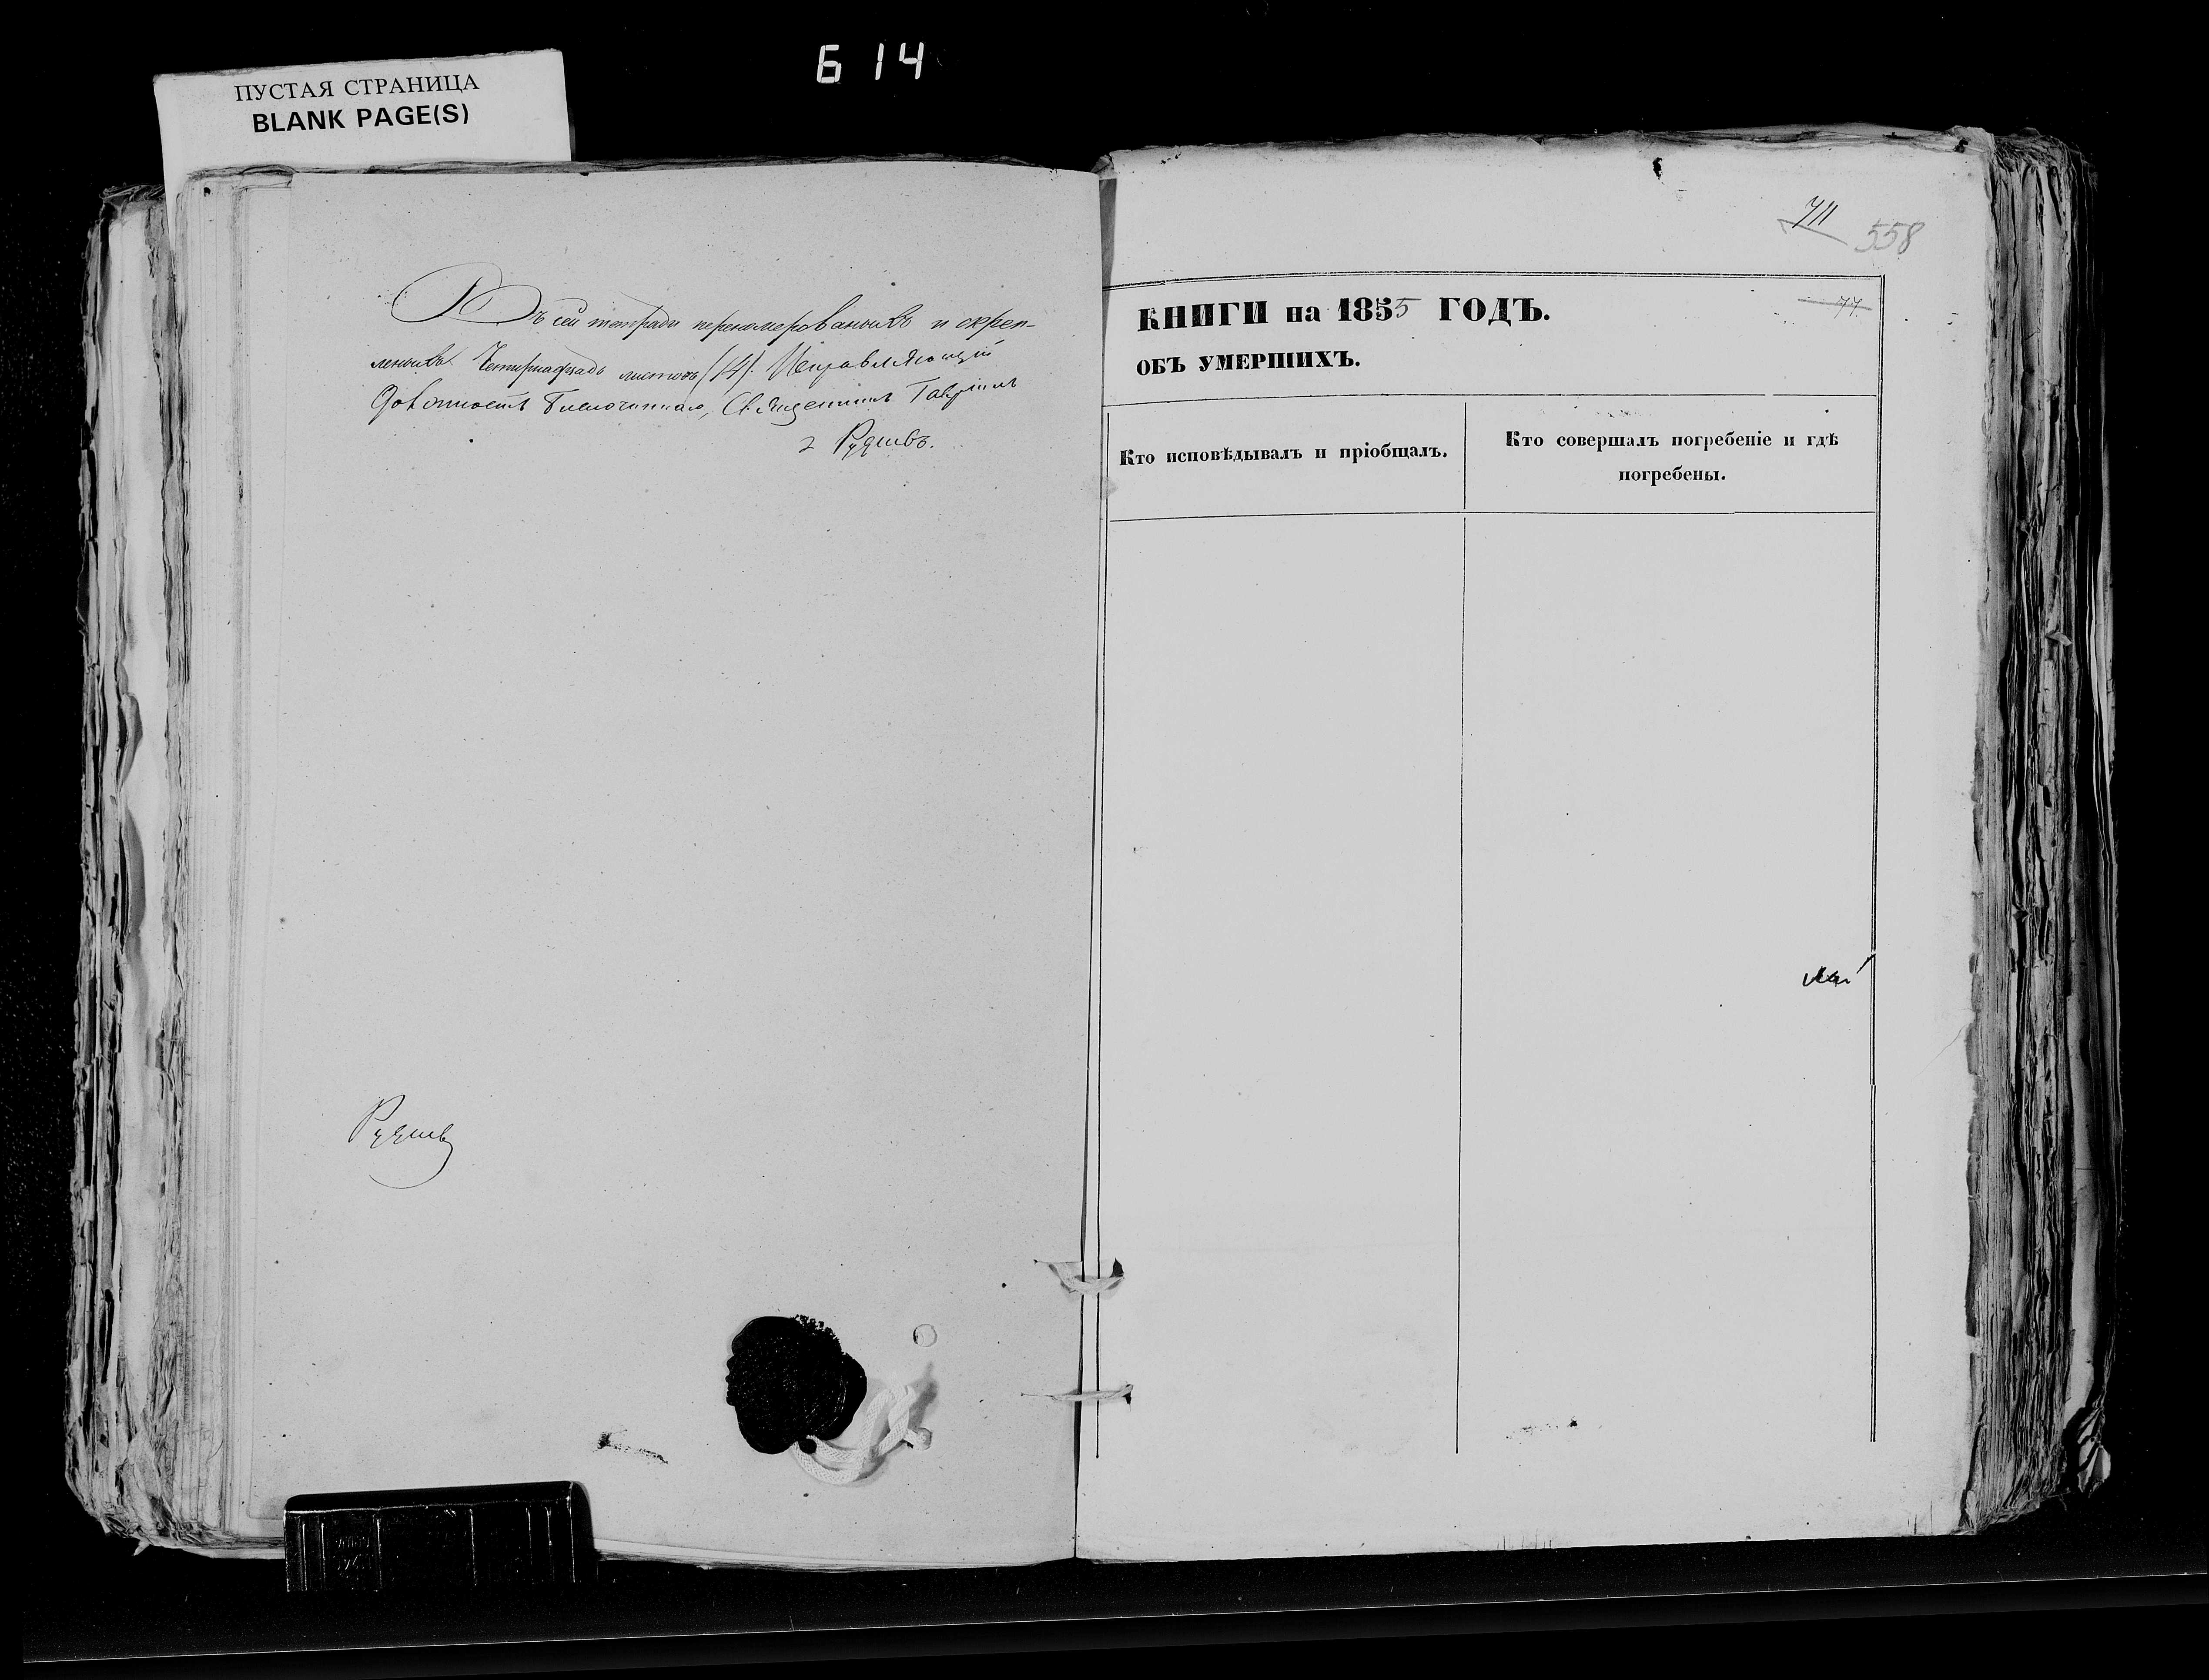 Б 14
ПУСТАЯ СТРАНИЦА
BLANK PAGE(S)
Въ сей тетради перенумерованныхъ и скреп-
ленныхъ четырнадцать листовъ (14). Исправляющій
Должность Благочиннаго, Священникъ Гавріилъ
Рудневъ.
Рудневъ
711
558
77
КНИГИ на 1855 ГОДЪ.
ОБЪ УМЕРШИХЪ.
Кто исповѣдывалъ и пріобщалъ.
Кто совершалъ погребеніе и гдѣ
погребены.